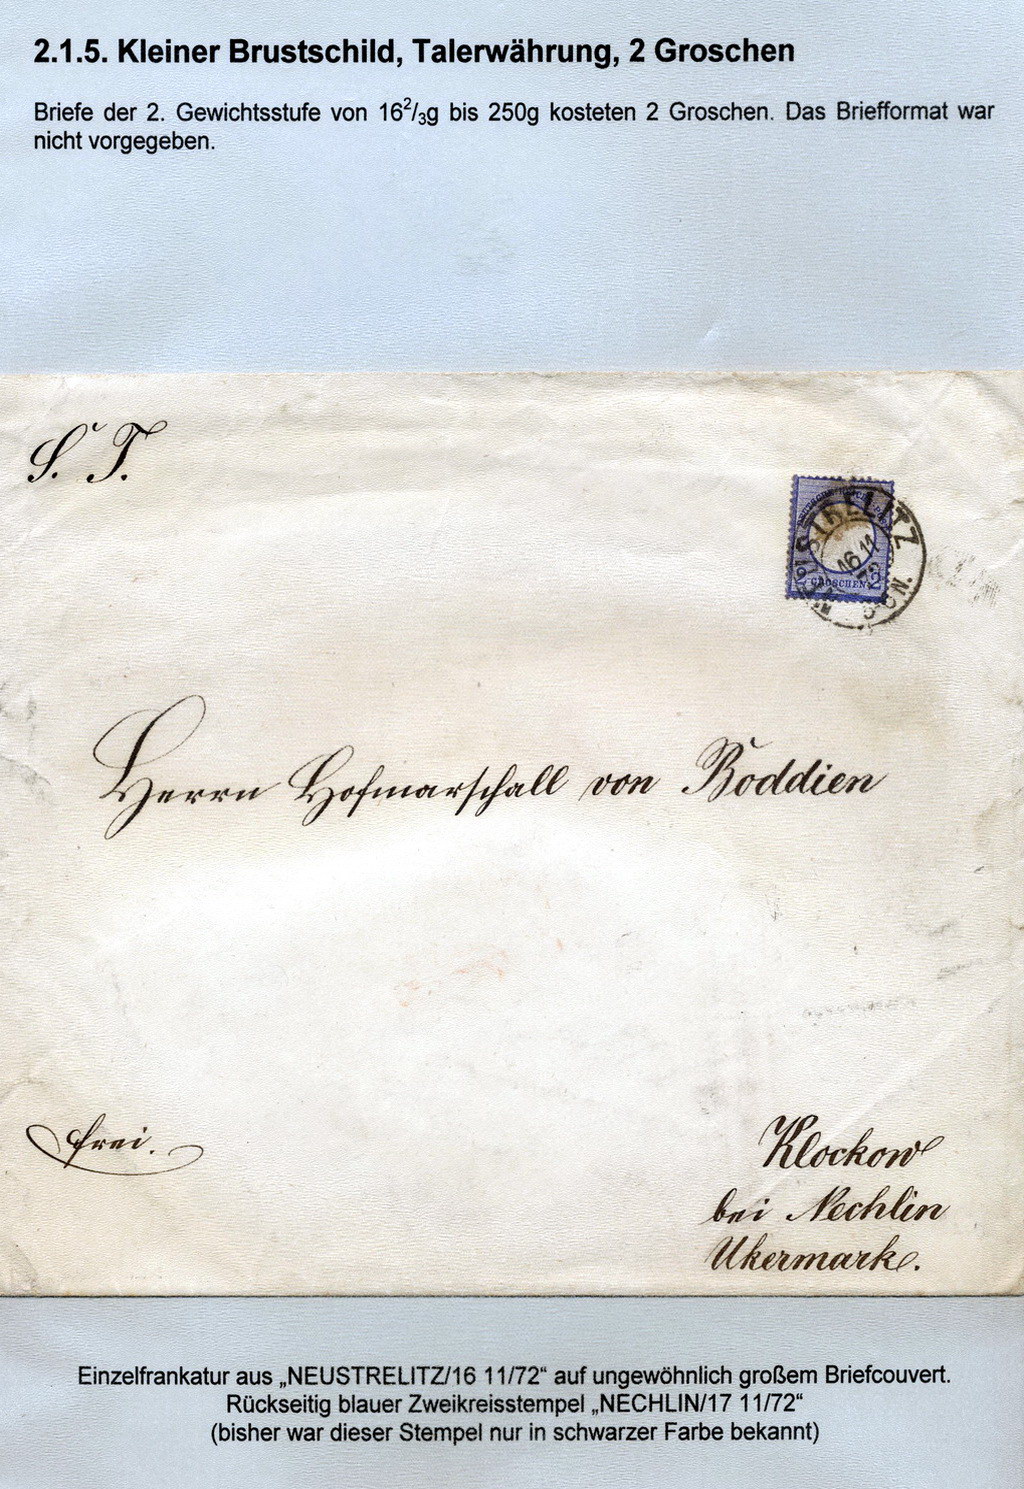 2.1.5. Kleiner Brustschild, Talerwährung, 2 Groschen
Briefe der 2. Gewichtsstufe von 16²/₃g bis 250g kosteten 2 Groschen. Das Briefformat war
nicht vorgegeben.
S. T.
NEUSTRELITZ
16 11
72
2 GROSCHEN 2
Herrn Hofmarschall von Boddien
frei.
Klockow
bei Nechlin
Ukermark.
Einzelfrankatur aus „NEUSTRELITZ/16 11/72“ auf ungewöhnlich großem Briefcouvert.
Rückseitig blauer Zweikreisstempel „NECHLIN/17 11/72“
(bisher war dieser Stempel nur in schwarzer Farbe bekannt)